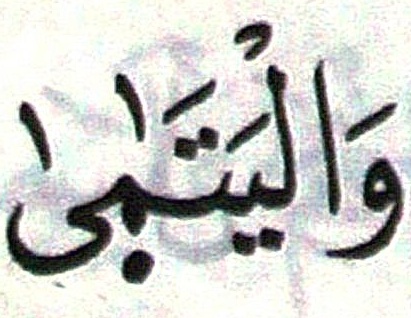 وَالْيَتَٰمىٰ